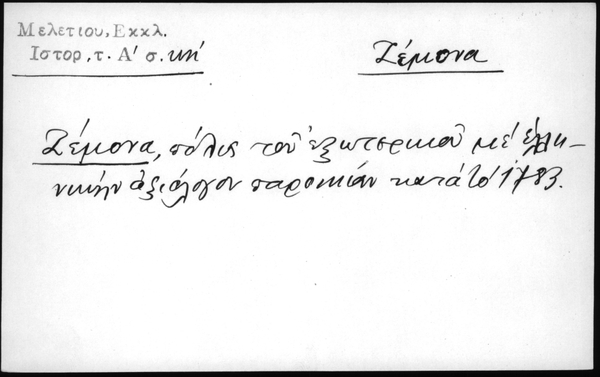 Μελετίου, Εκκλ.
Ιστορ, τ. Α' σ. κη'
Ζέμονα
Ζέμονα, πόλις τοῦ ἐξωτερικοῦ μέ ἑλλη-
νικήν ἀξιόλογον παροικίαν κατά τό 1783.